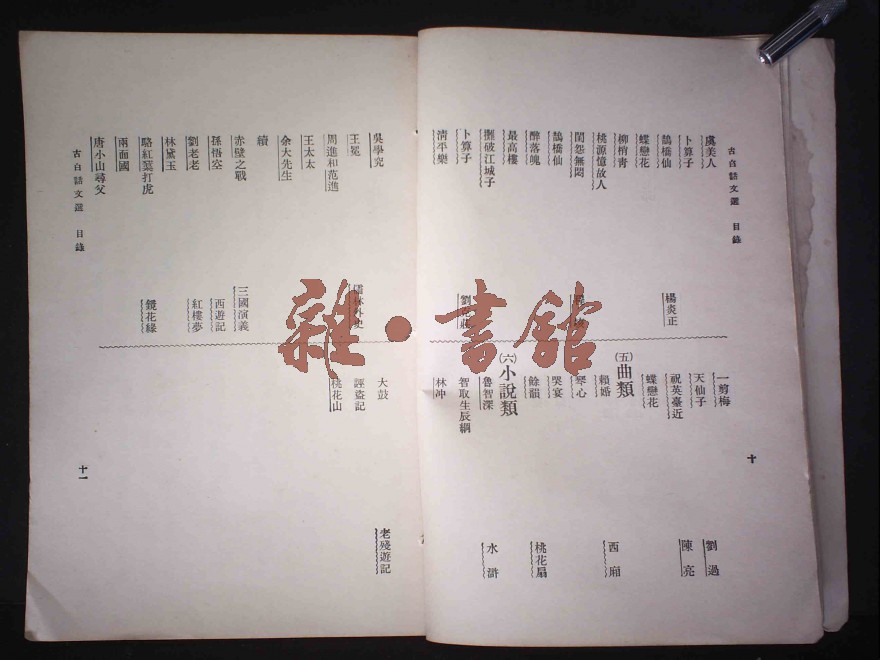 古白話文選 目錄
虞美人
卜算子
鵲橋仙 楊炎正
蝶戀花
柳梢青
桃源憶故人
閨怨無悶
鵲橋仙
醉落魄
最高樓
攤破江城子
卜算子
清平樂
一剪梅 劉過
天仙子
祝英臺近 陳亮
蝶戀花
(五)曲類
賴婚 西廂
琴心
哭宴
餘韻 桃花扇
(六)小說類
魯智深 水滸
智取生辰綱
林冲
十
吳學究
王冕
周進和范進
王太太
余大先生
續
赤壁之戰 三國演義
孫悟空 西遊記
劉老老 紅樓夢
林黛玉
駱紅蕖打虎 鏡花緣
兩面國
唐小山尋父
古白話文選 目錄
大鼓 老殘遊記
誣盜記
桃花山
十一
雜·書館